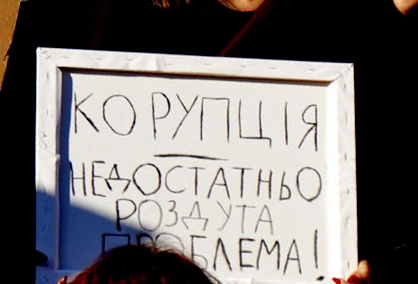 КОРУПЦІЯ
НЕДОСТАТНЬО
РОЗДУТА
ПРОБЛЕМА!